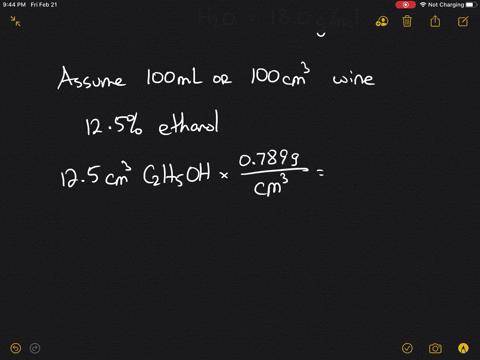 9:44 PM Fri Feb 21
Not Charging
H2O = 18.0 g/mol
Assume 100mL or 100cm³ wine
12.5% ethanol
12.5 cm³ C2H5OH × 0.789g / cm³ =